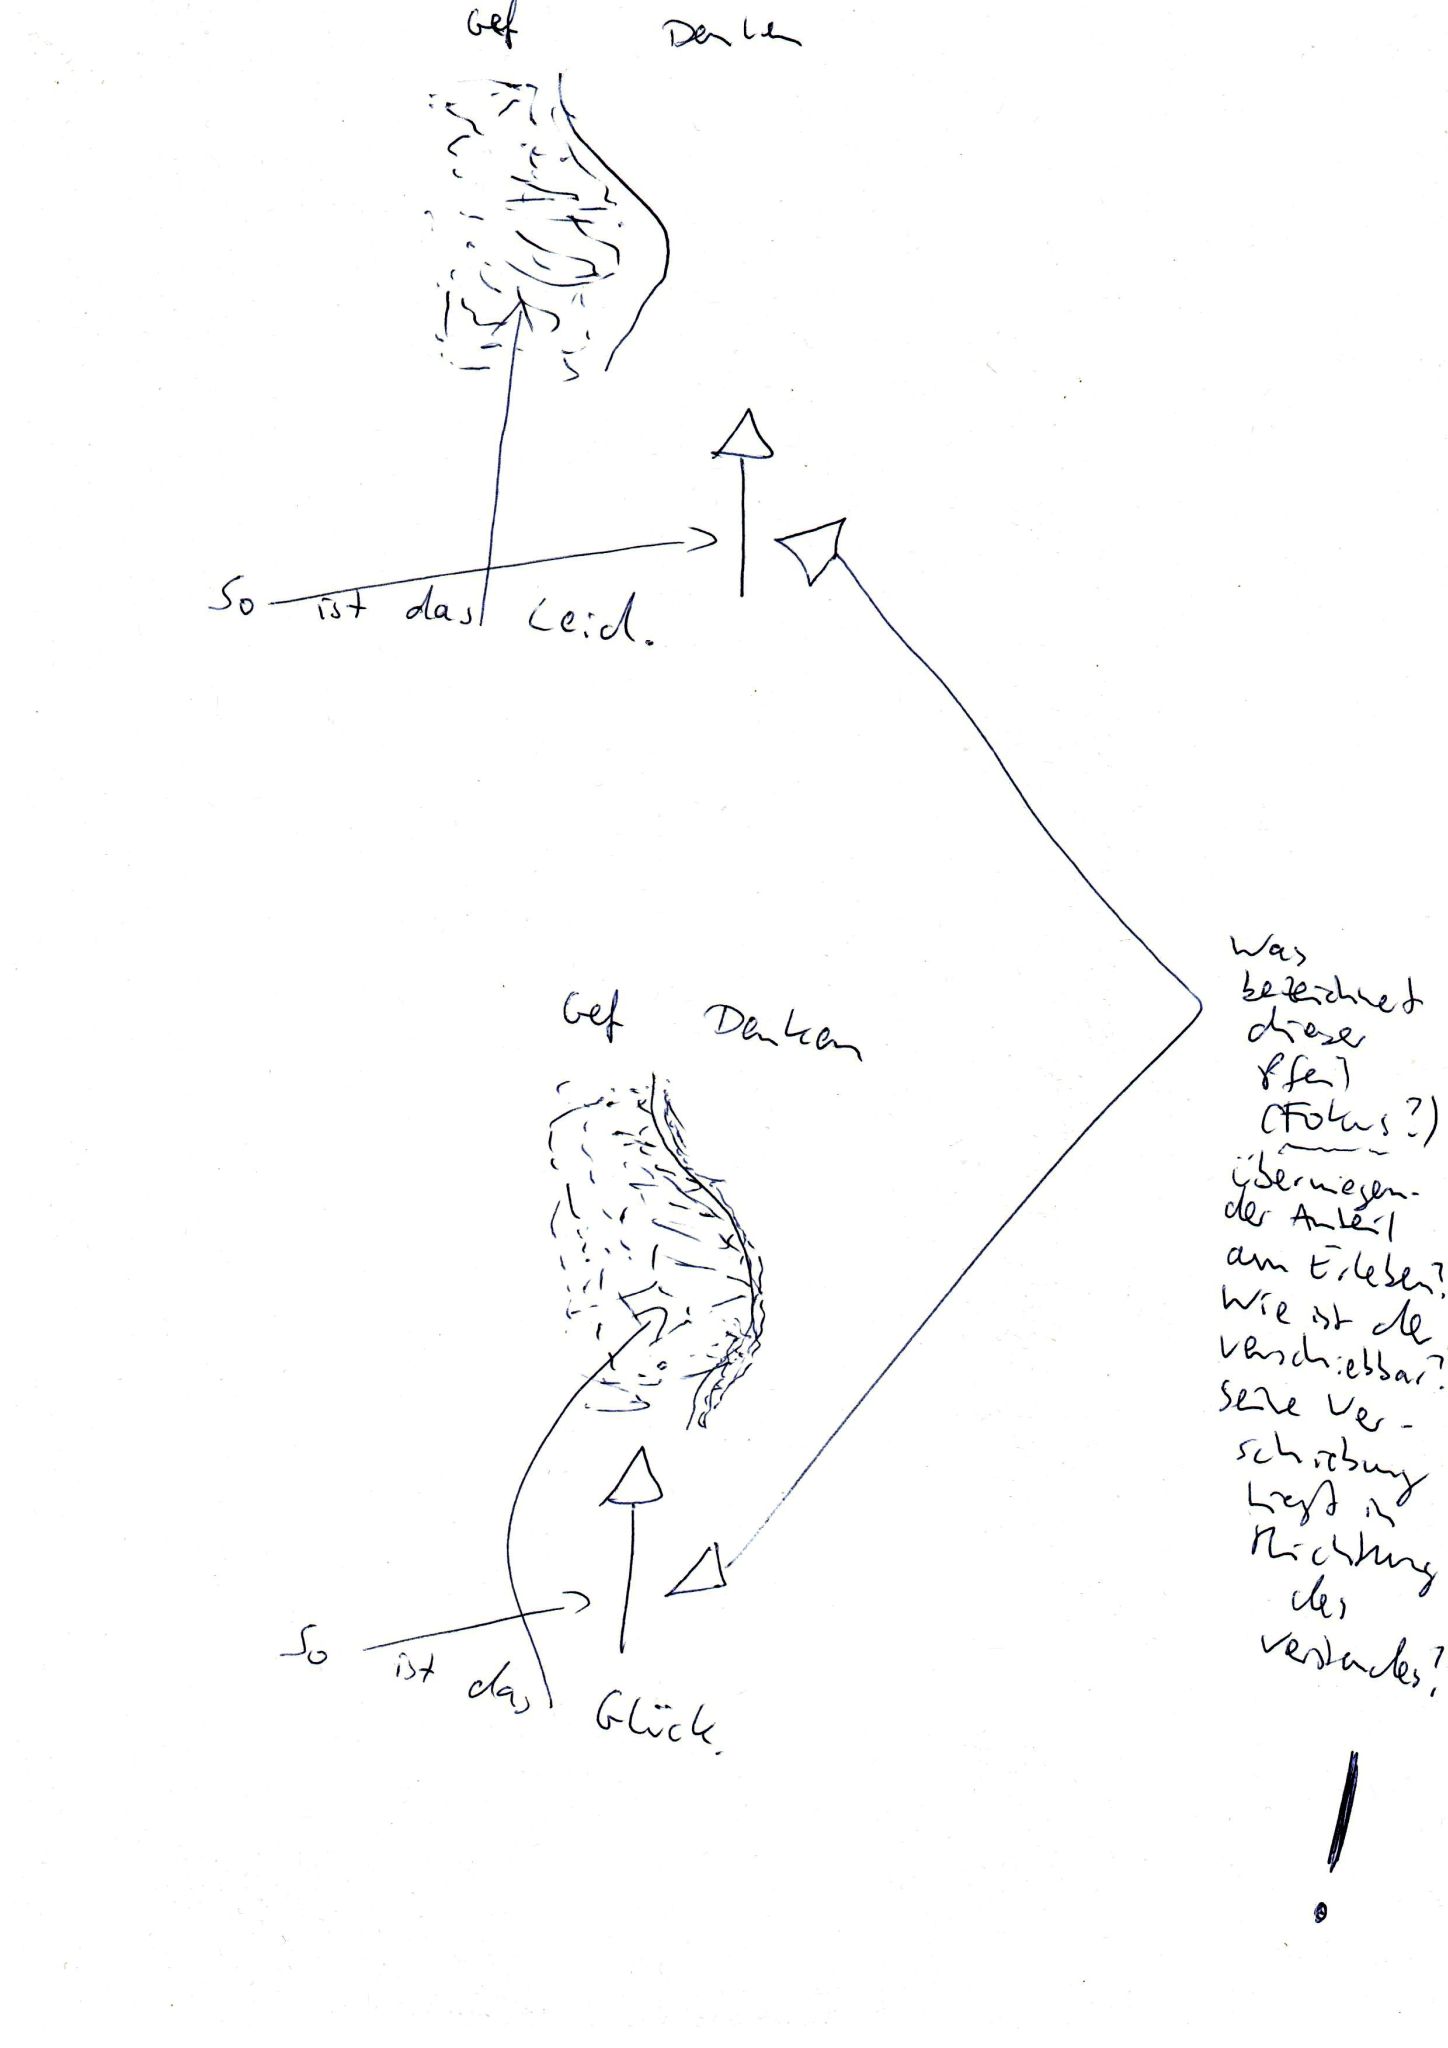 Gef Denken
So ist das Leid.
Gef Denken
So ist das Glück.
Was
bezeichnet
dieser
Pfeil
(Fokus?)
überwiegen-
der Anteil
am Erleben?
Wie ist der
verschiebbar?
Seine Ver-
schiebung
liegt in
Richtung
des
Verstandes?
!